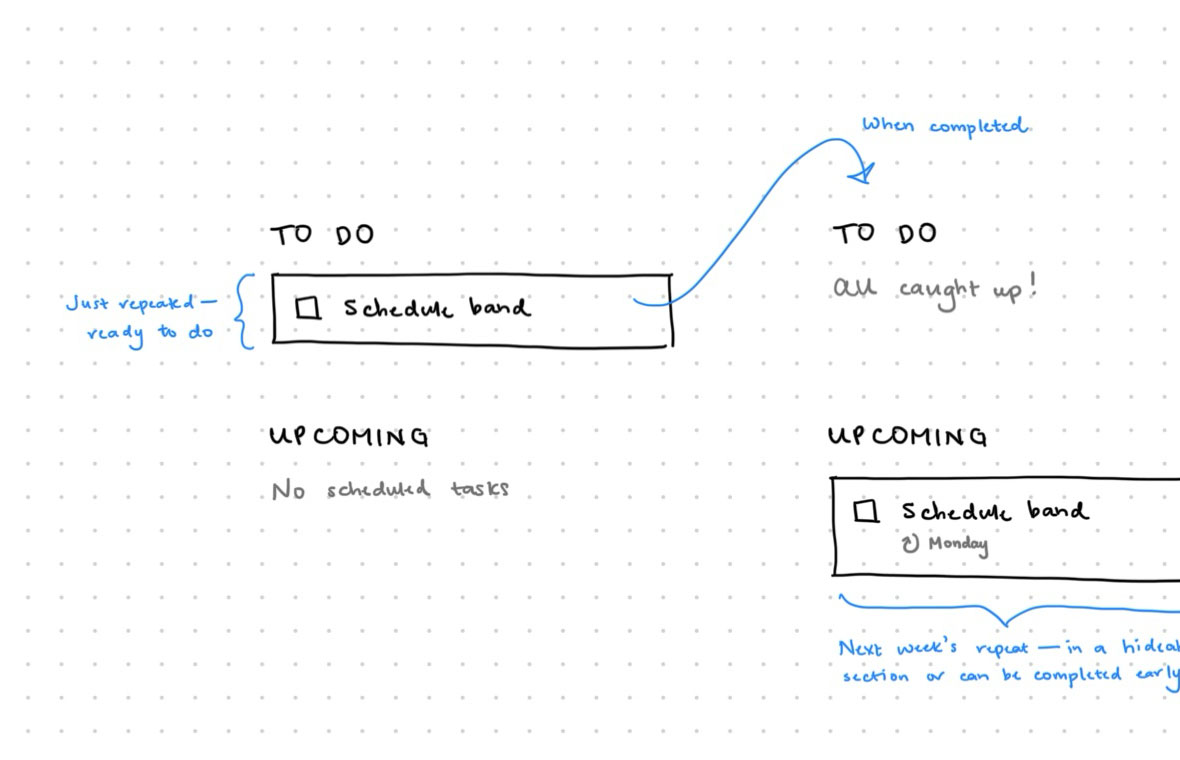 When completed
TO DO
Just repeated —
ready to do
Schedule band
UPCOMING
No scheduled tasks
TO DO
all caught up!
UPCOMING
Schedule band
Monday
Next week's repeat — in a
section or can be completed early